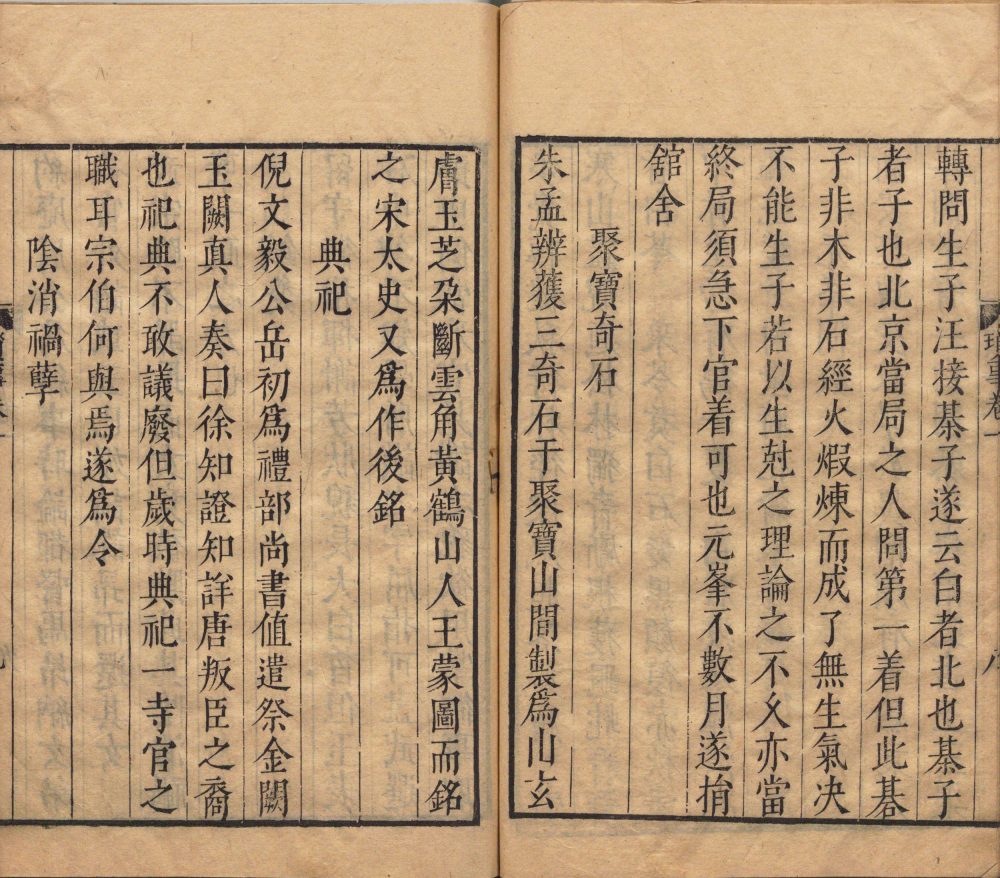 轉問生子汪接棊子遂云白者北也棊子
者子也北京當局之人問第一着但此碁
子非木非石經火煅煉而成了無生氣决
不能生子若以生尅之理論之不乆亦當
終局須急下官着可也元峯不數月遂捐
舘舍
聚寶奇石
朱孟辨獲三奇石于聚寶山間製爲山玄
膚玉芝朶斷雲角黃鶴山人王蒙圖而銘
之宋太史又爲作後銘
典祀
倪文毅公岳初爲禮部尚書值遣祭金闕
玉闕真人奏曰徐知證知諤唐叛臣之裔
也祀典不敢議廢但歲時典祀一寺官之
職耳宗伯何與焉遂爲令
陰消禍孽